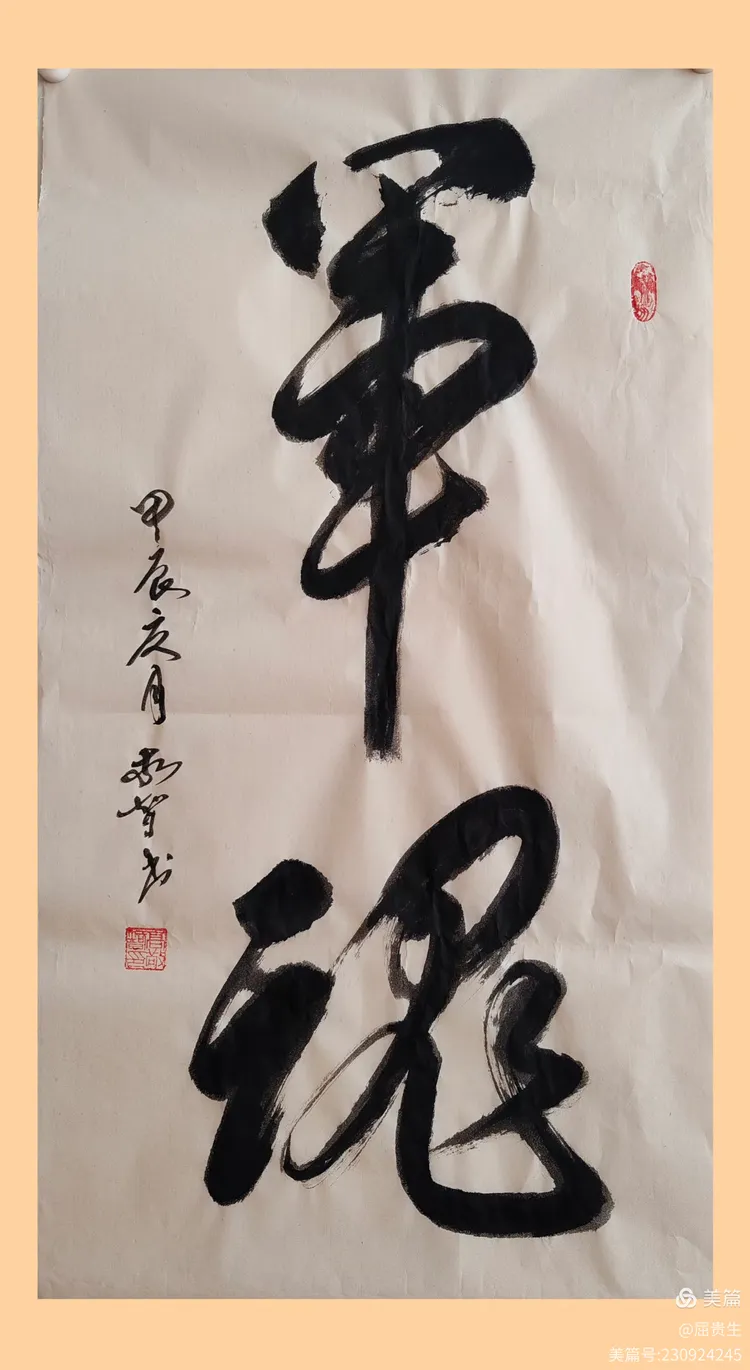 軍魂
甲辰庚月
书
美篇
@屈贵生
美篇号:230924245